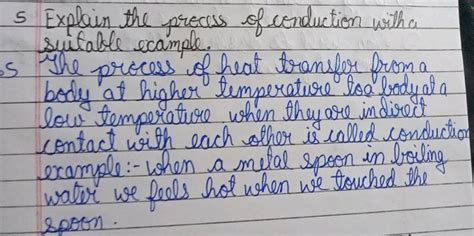 5 Explain the process of conduction with a
suitable example.
5 The process of heat transfer from a
body at higher temperature to a body at a
low temperature when they are in direct
contact with each other is called conduction
example:- when a metal spoon in boiling
water we feels hot when we touched the
spoon.